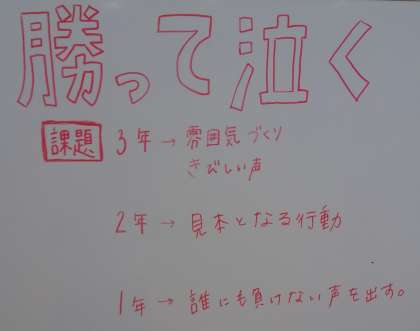 勝って泣く
課題 3年→雰囲気づくり
きびしい声
2年→見本となる行動
1年→誰にも負けない声を出す。